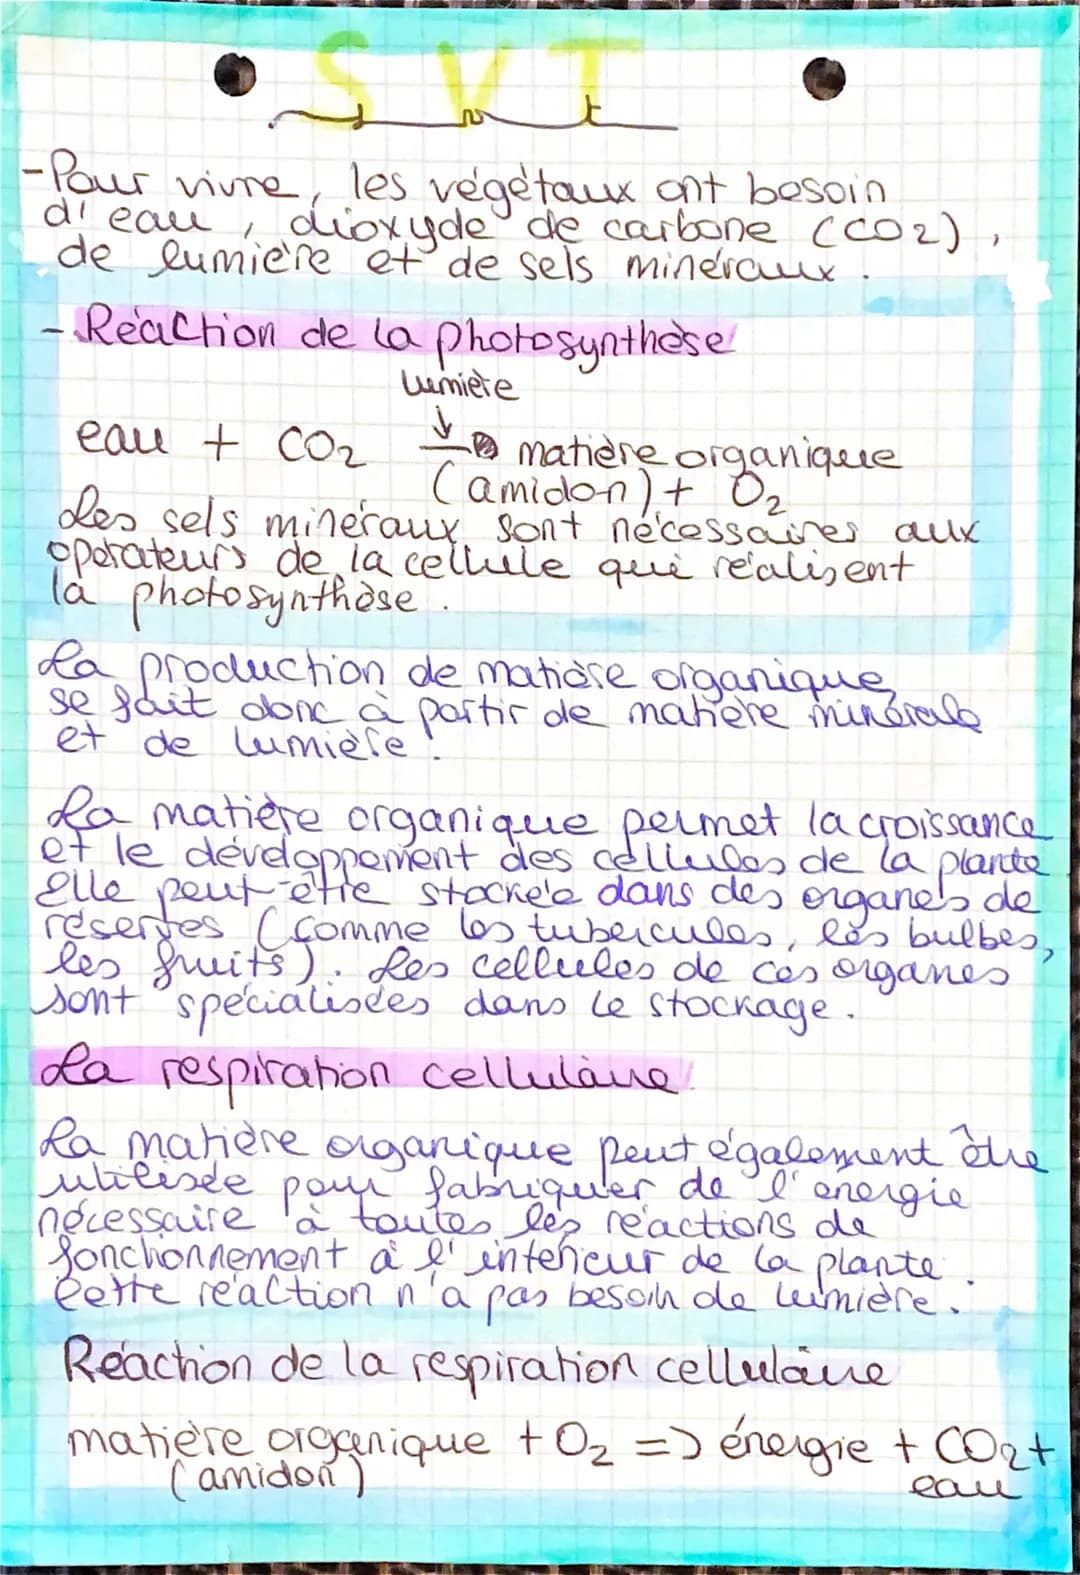 SVT
svt
-Pour vivre, les végétaux ont besoin
d'eau, dioxyde de carbone (CO2),
de lumière et de sels minéraux.
- Réaction de la photosynthèse
lumière
eau + CO2 → matière organique
(amidon) + O2
Les sels minéraux sont nécessaires aux
opérateurs de la cellule qui réalisent
la photosynthèse.
La production de matière organique
se fait donc à partir de matière minérale
et de lumière.
La matière organique permet la croissance
et le développement des cellules de la plante
elle peut-être stockée dans des organes de
réserves (comme les tubercules, les bulbes,
les fruits). Les cellules de ces organes
sont spécialisées dans le stockage.
La respiration cellulaire
La matière organique peut également être
utilisée pour fabriquer de l'énergie
nécessaire à toutes les réactions de
fonctionnement à l'intérieur de la plante.
Cette réaction n'a pas besoin de lumière.
Réaction de la respiration cellulaire
matière organique + O2 => énergie + CO2 +
(amidon) eau